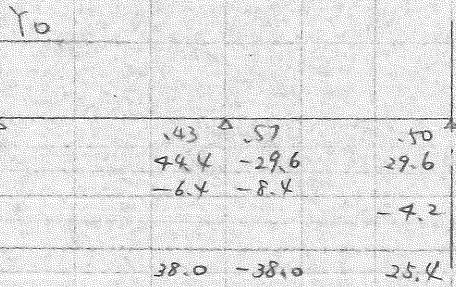 Yo
.43 .57 .50
44.4 -29.6 29.6
-6.4 -8.4
-4.2
38.0 -38.0 25.4